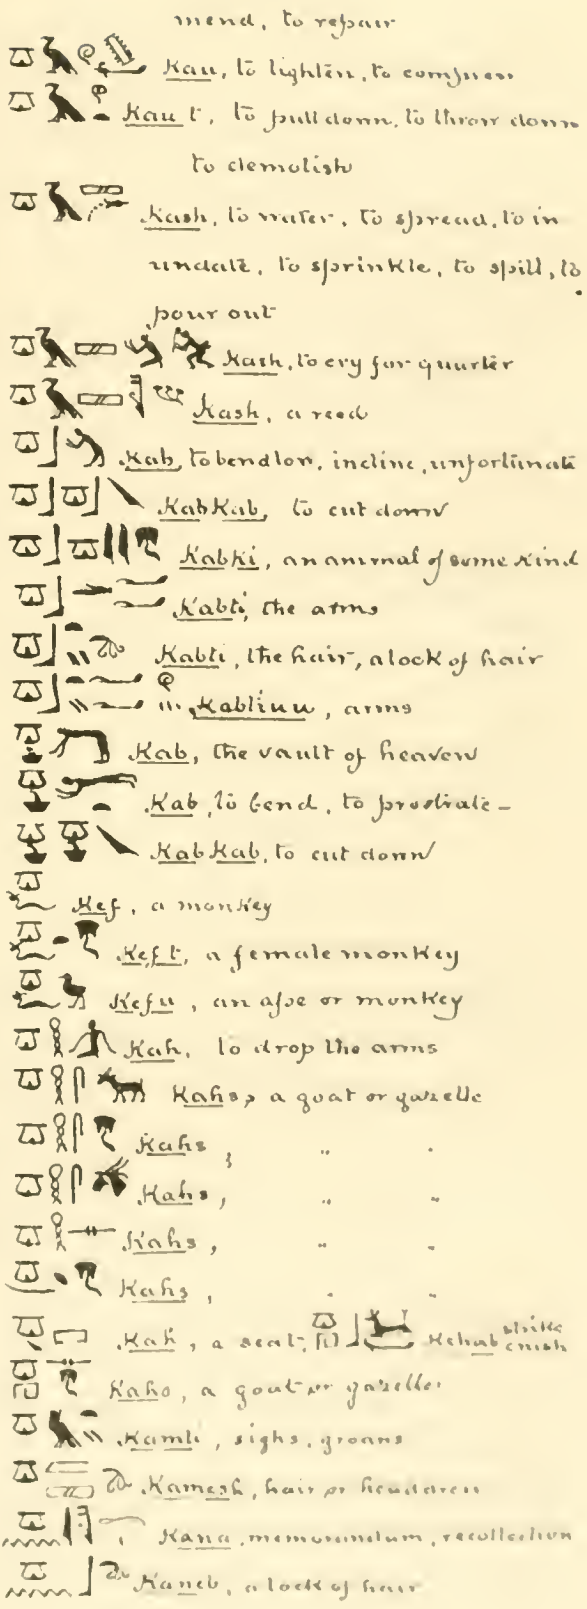 mend, to repair
Kau, to tighten, to compress
Kau t, to pull down, to throw down
to demolish
Kash, to water, to spread, to in
undate, to sprinkle, to spill, to
pour out
Kash, to cry for quarter
Kash, a reed
Kab, to bend low, incline, unfortunate
KabKab, to cut down
Kabki, an animal of some kind
Kabti, the arms
Kabti, the hair, a lock of hair
Kabtiuu, arms
Kab, the vault of heaven
Kab, to bend, to prostrate -
KabKab, to cut down
Kef, a monkey
Kef t, a female monkey
Kefu, an ape or monkey
Kah, to drop the arms
Kahs, a goat or gazelle
Kahs, " "
Kahs, " "
Kahs, " "
Kahs, " "
Kah, a seat, Kehab strike
Kahs, a goat or gazelle
Kamti, sighs, groans
Kamesh, hair or headdress
Kana, memorandum, recollection
Kaneb, a lock of hair